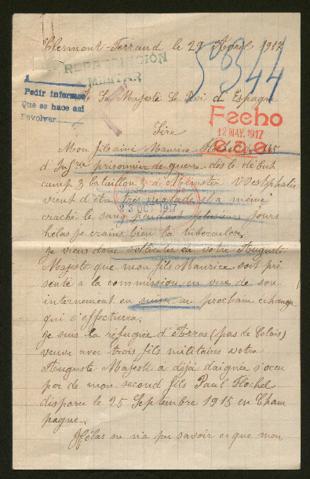 Clermont-Ferrand le 29 Avril 1917
58344
REPATRIACIÓN
MILITAR
A
Pedir informes
Que se hace así
Devolver
Sa Majesté Le Roi d'Espagne
Fecho
12 MAY. 1917
Sire
Mon fils ainé Maurice
d'Inf.rie prisonnier de guerre dès le début
camp 3 Bataillon Münster Westphalie
vient d'être très malade et a même
craché le sang pendant plusieurs jours
helas je crains bien la tuberculose
Je viens donc solliciter de votre Auguste
Majesté que mon fils Maurice soit pré
senté à la commission en vue de son
internement en suisse au prochain échange
qui s'effectuera
je suis la réfugiée d'Arras (pas de Calais)
veuve avec trois fils militaires votre
Auguste Majesté a déjà daignée s'occu
per de mon second fils Paul Hochel
disparu le 25 Septembre 1915 en Cham
pagne.
Hélas on n'a pu savoir ce que mon